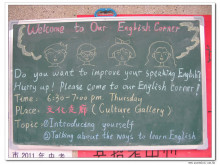 Welcome to Our English Corner
Do you want to improve your speaking English?
Hurry up! Please come to our English Corner!
Time: 6:30-7:00 p.m. Thursday
Place: 文化走廊 (Culture Gallery)
Topic: ① Introducing yourself
② Talking about the ways to learn English.